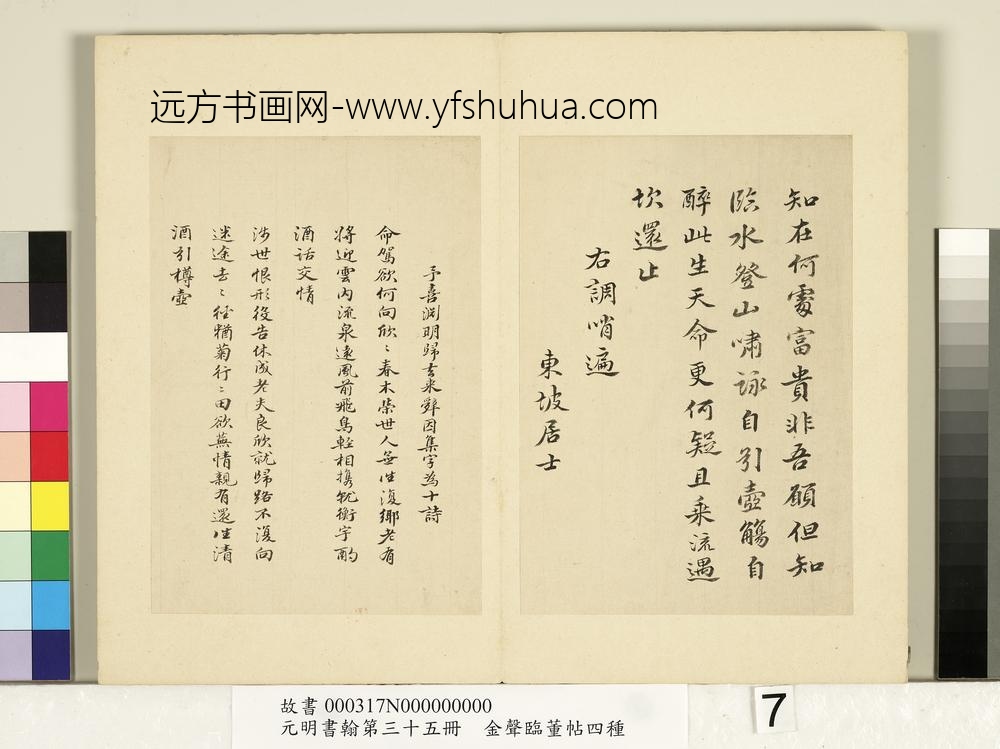 远方书画网-www.yfshuhua.com
知在何處富貴非吾願但知
臨水登山嘯詠自引壺觴自
醉此生天命更何疑且乘流遇
坎還止
右調哨遍
東坡居士
予喜淵明歸去來辭因集字為十詩
命駕欲何向欣〻春木榮世人無往復鄉老有
將迎雲內流泉遠風前飛鳥輕相攜就衡宇酌
酒話交情
涉世恨形役告休成老夫良欣就歸路不復向
迷途去〻徑猶菊行〻田欲蕪情親有還往清
酒引樽壺
故書 000317N000000000
元明書翰第三十五冊 金聲臨董帖四種
7